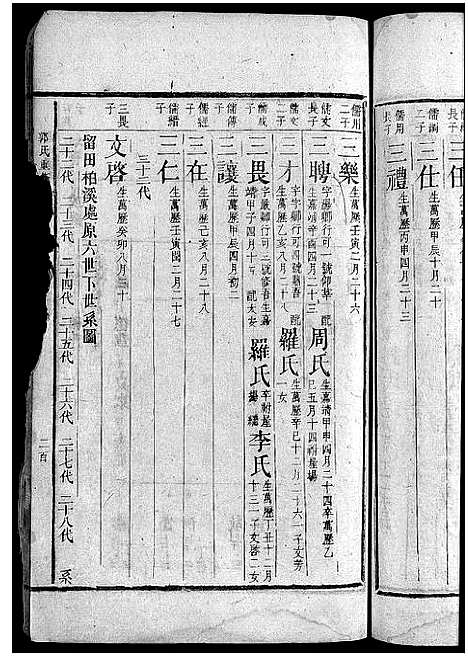 三任
儒滴
二子
三仕
生萬歷甲辰十月二十
儒周
長子
三禮
生萬歷丙申四月二十三
儒用
二子
三樂
生萬歷壬寅二月二十六
儒文
長子
三聘
字 卿行可一號仰莘
生嘉靖辛酉四月二十三
配
周氏
生嘉靖甲申四月二十四卒萬歷乙
巳五月十四祔 塲
儒文
二子
三才
字宇卿行可四號
生萬歷乙亥八月二十八
配
羅氏
生萬歷辛巳十二月二十六一子文芳
一女
儒成
子
三畏
字嚴卿行可三號修吾生嘉
靖甲子四月十五 配太安
羅氏
李氏
生萬歷丁丑十二月
十三一子文啓二女
儒傳
子
三讓
生萬歷甲辰四月初二
儒經
子
三在
生萬歷己亥八月二十八
儒縉
子
三仁
生萬歷壬寅閏二月二十七
二十二代
三畏
子
文啓
生萬歷癸卯八月三十
留田柏溪處原六世下世系圖
二十二代 二十三代 二十四代 二十五代 二十六代 二十七代 二十八代 系
郭氏
二百